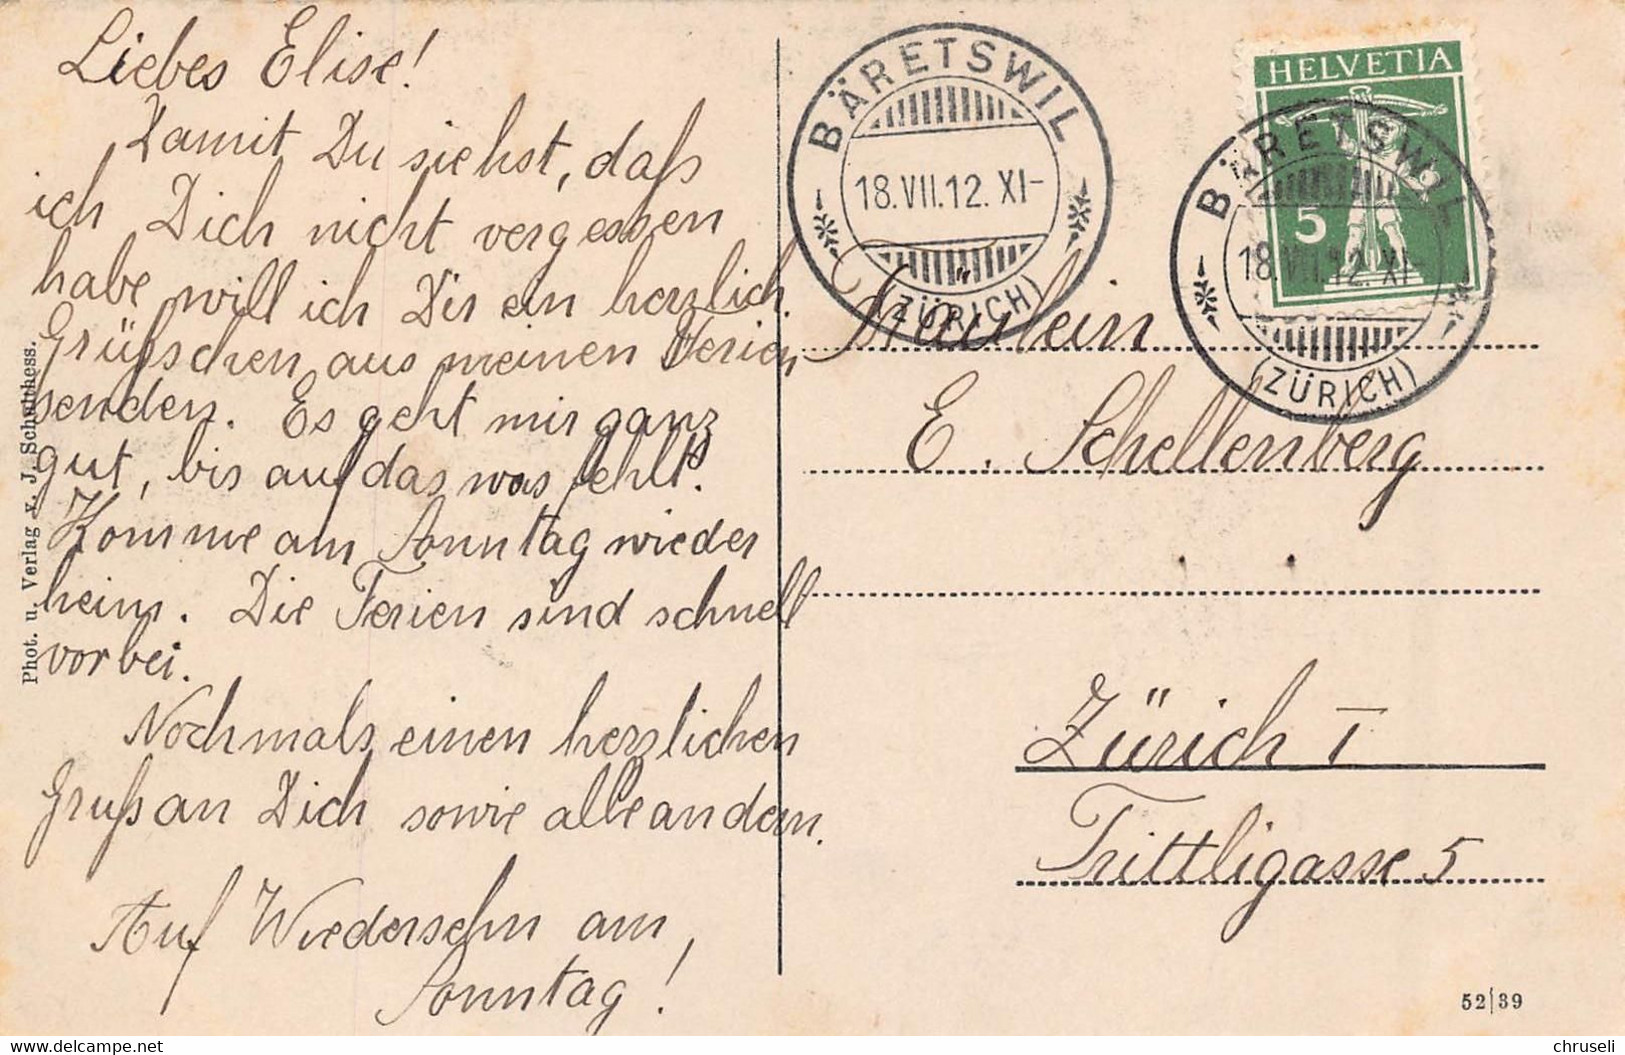 Liebes Elise!
Damit Du siehst, daß
ich Dich nicht vergessen
habe will ich Dir ein herzlich.
Grüßschen aus meinen Ferien
senden. Es geht mir ganz
gut, bis auf das was fehlt.
Komme am Sonntag wieder
heim. Die Ferien sind schnell
vorbei.
Nochmals einen herzlichen
Gruß an Dich sowie alle andern.
Auf Wiedersehn am
Sonntag!
Phot. u. Verlag v. J. Schulthess.
BÄRETSWIL
18.VII.12. XI-
(ZÜRICH)
HELVETIA
5
BÄRETSWIL
18.VII.12. XI-
(ZÜRICH)
Fräulein
E. Schellenberg
Zürich I
Trittligasse 5
52|39
delcampe.net
chruseli